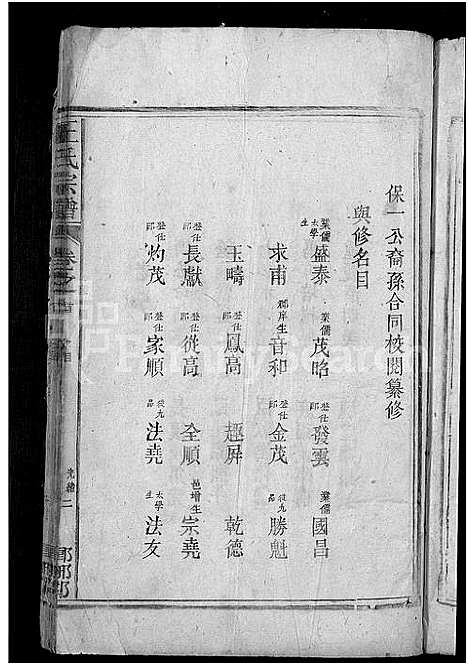 保一公裔孫合同校閱纂修
與修名目
業儒太學生盛泰 業儒茂昭 登仕郎發雲 業儒國昌
求甫 郡庠生音和 登仕郎金茂 從九品勝魁
玉疇 鳳高 趣屏 乾德
登仕郎長獻 登仕郎從高 全順 邑增生宗堯
登仕郎灼茂 登仕郎家順 從九品法堯 太學生法友
王氏宗譜 卷之
FamilySearch